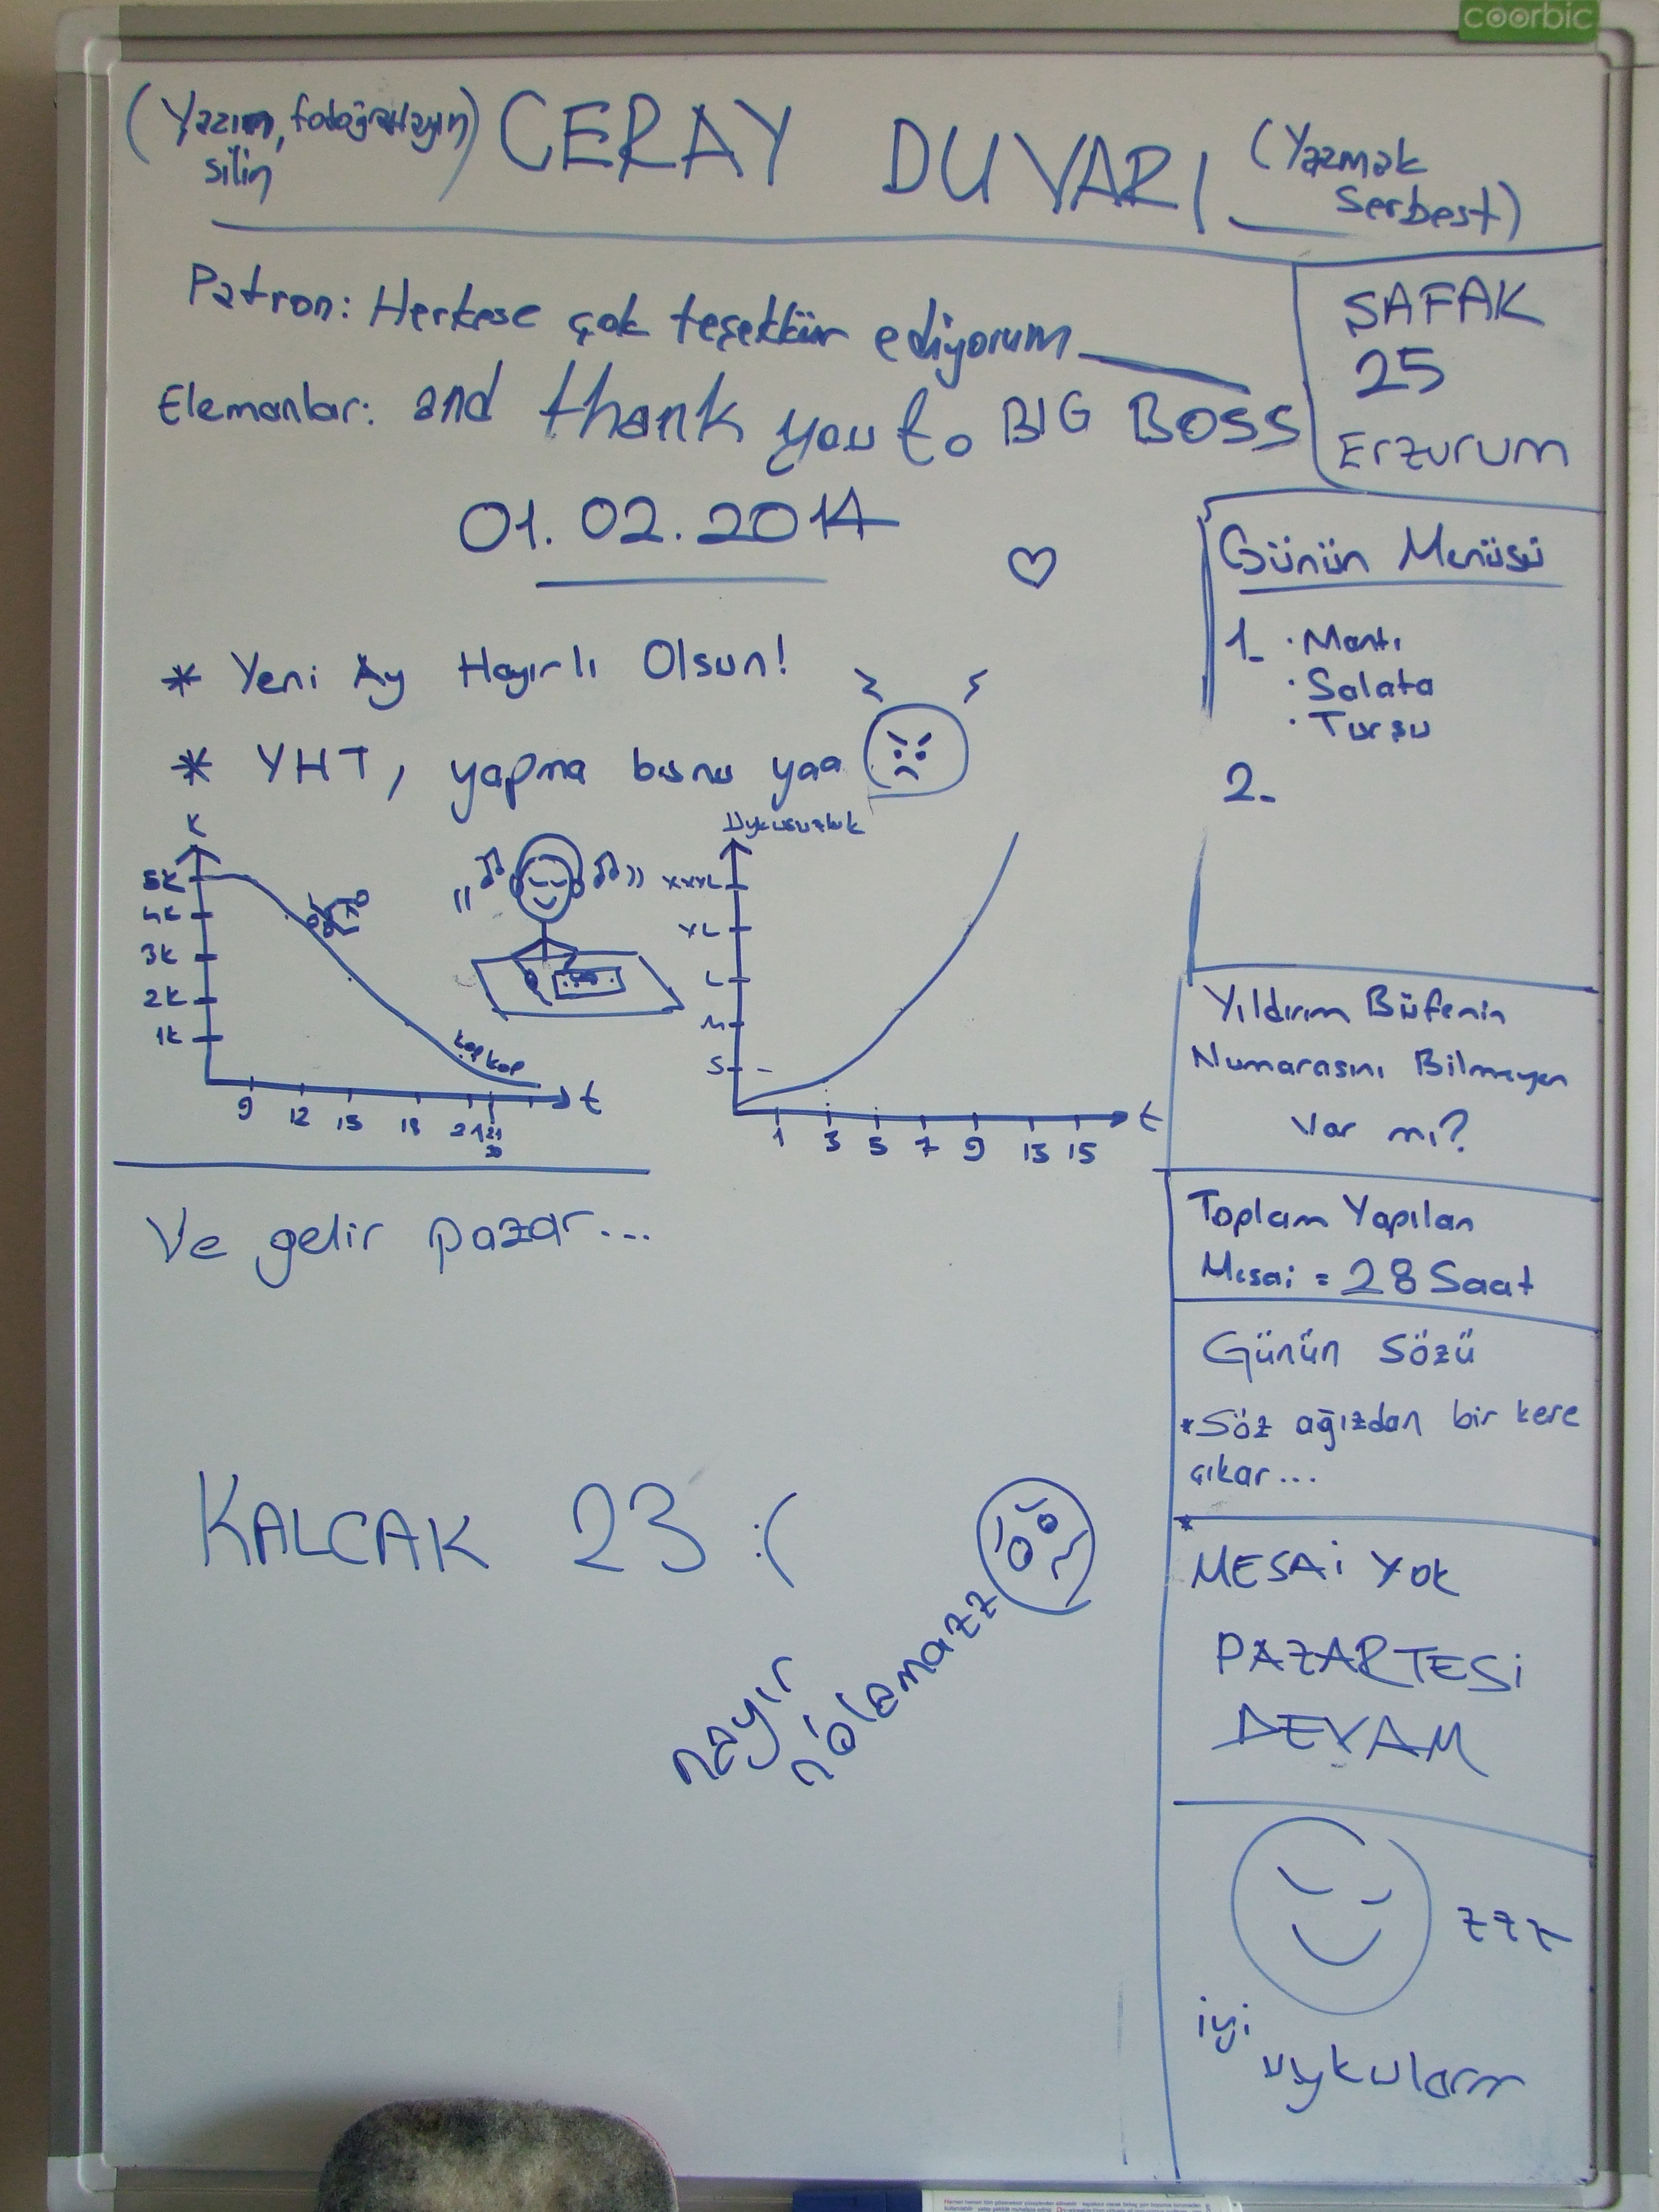 coorbic
(Yazın, fotoğraflayın
silin)
CERAY DUVARI
(Yazmak
serbest)
Patron: Herkese çok teşekkür ediyorum
Elemanlar: and thank you to BIG BOSS
01.02.2014
* Yeni Ay Hayırlı Olsun!
* YHT, yapma bunu yaa
K
5K
4K
3K
2K
1K
kop kop
9 12 15 18 21 21
30
t
Uykusuzluk
XXXL
XL
L
M
S
1 3 5 7 9 13 15
t
Ve gelir pazar...
KALCAK 23 :(
nayır
n'olamazz
ŞAFAK
25
Erzurum
Günün Menüsü
1- · Mantı
· Salata
· Turşu
2-
Yıldırım Büfenin
Numarasını Bilmeyen
Var mı?
Toplam Yapılan
Mesai = 28 Saat
Günün Sözü
* Söz ağızdan bir kere
çıkar...
*
MESAİ YOK
PAZARTESİ
DEVAM
zzz
iyi
uykularrr